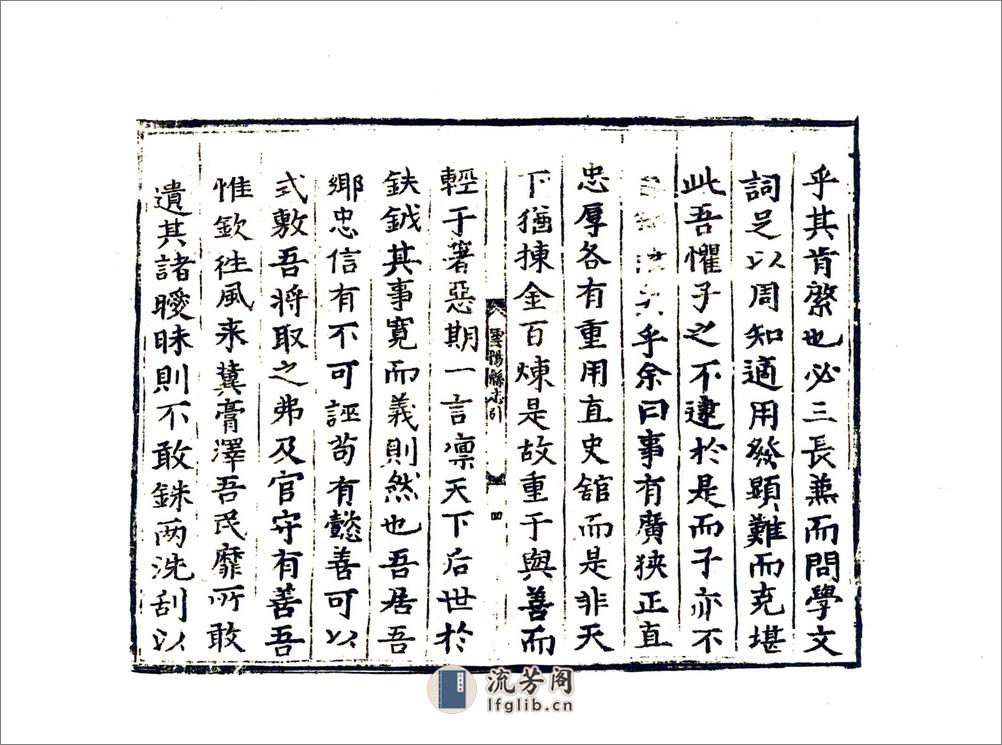 乎其肯綮也必三長兼而問學文
詞足以周知適用發顕難而克堪
此吾懼子之不逮於是而子亦不
乎余曰事有廣狹正直
忠厚各有重用直史舘而是非天
下猶揀金百煉是故重于與善而
雲陽縣志引
四
輕于著惡期一言凛天下后世於
鈇鉞其事寛而義則然也吾居吾
鄉忠信有不可誣苟有懿善可以
式敷吾將取之弗及官守有善吾
惟欽徃風来冀膏澤吾民靡所敢
遺其諸曖昧則不敢銖两洗刮以
流芳阁
lfglib.cn